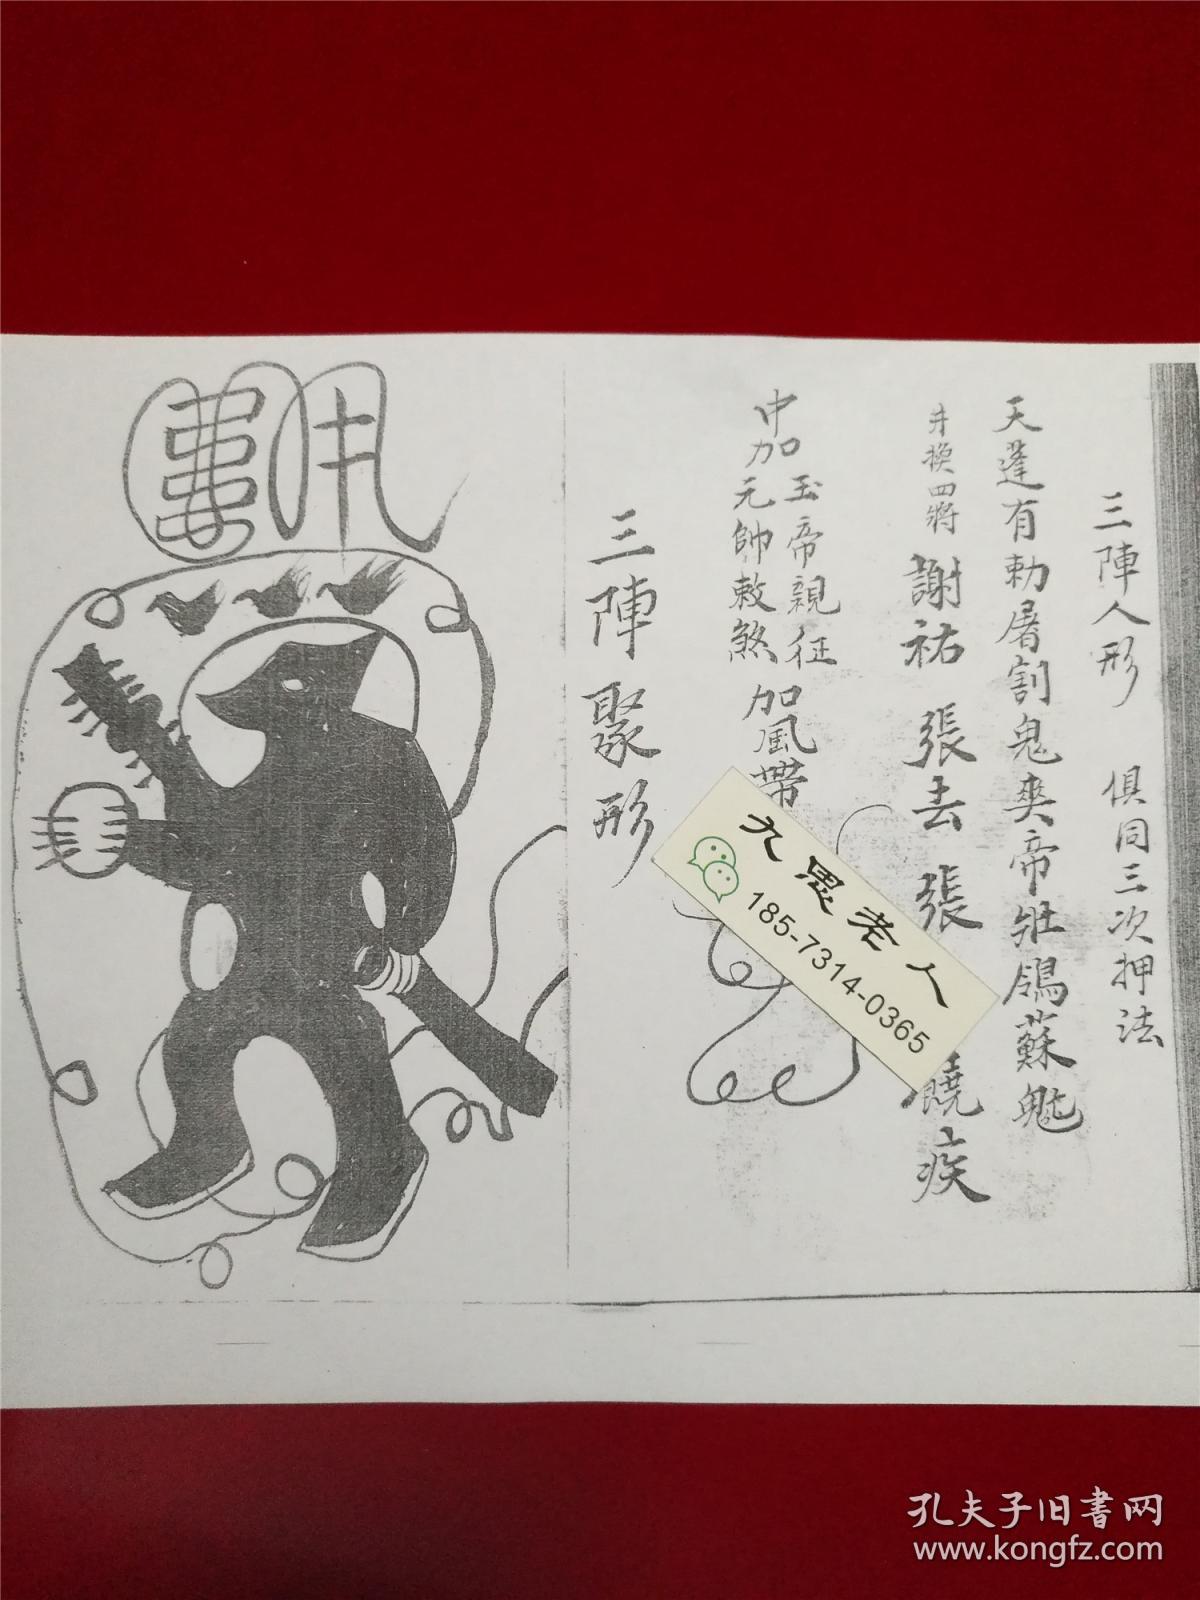 三陣人形 俱同三次押法
天蓬有勅屠割鬼爽帝壯鴒蘇魁
井換四將 謝祐 張去 張 饒疾
玉帝親征
中加元帥敕煞 加風帶
三陣聚形
九思老人
185-7314-0365
孔夫子旧书网
www.kongfz.com